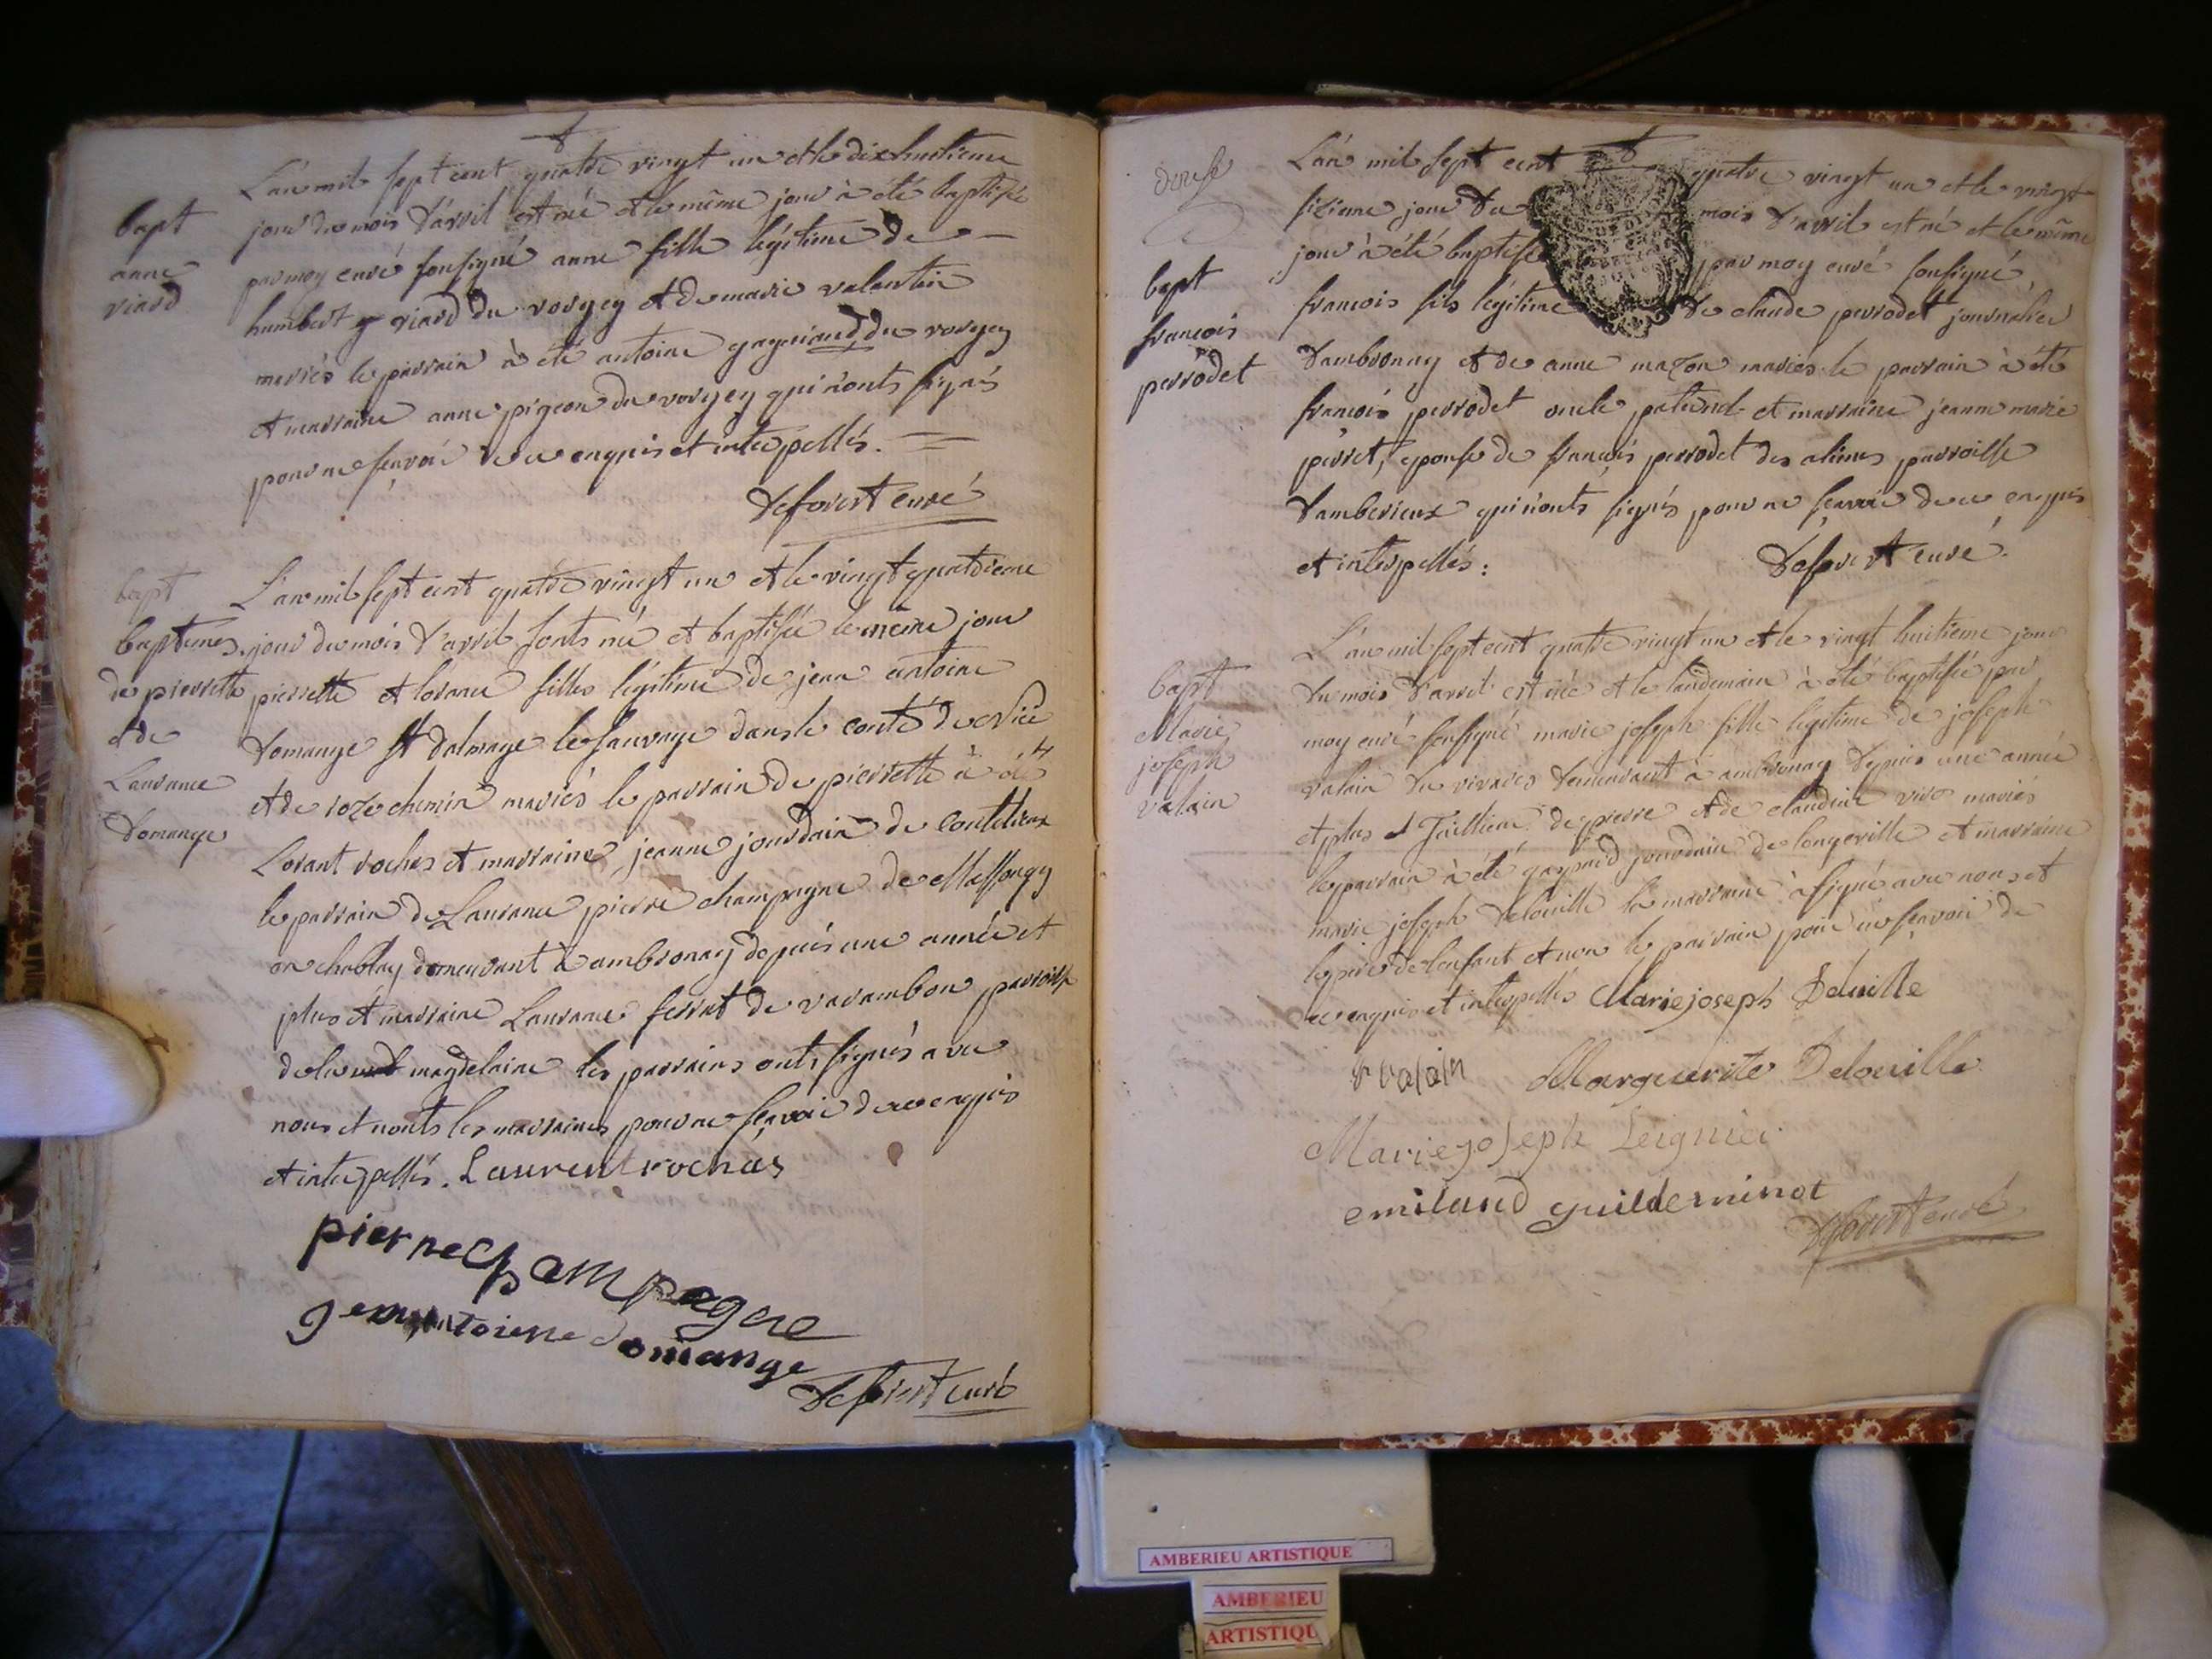 L'an mil sept cent quatre vingt un et le dixhuitieme
jour du mois d'avril est né et le même jour à été baptisée
par moy curé sousigné anne fille légitime de
humbert viard du vorgey et de marie valentin
mariés le parrain à été antoine gagniaud du vorgey
et marraine anne pigeon du vorgey qui n'onts signés
pour ne sçavoir de ce enquis et interpellés.
Deforest curé
bapt
anne
viard
L'an mil sept cent quatre vingt un et le vingt quatrieme
jour du mois d'avril sonts née et baptisée le même jour
pierrette et lorance filles légitime de jean antoine
domange st dalmage le sauvage dans le conté de
et de roze chemin mariés le parrain de pierrette à été
Lorant roches et marraine jeanne jourdain de coutelieux
le parrain de Laurance pierre champagne de Massongy
en chablay demeurant à ambronay depuis une année et
plus et marraine Laurance ferrat de varambon parroisse
de magdelaine les parrains onts signés avec
nous et nonts les marraines pour ne sçavoir de ce enquis
et interpellés. Laurent rochas
pierre champagne
jean antoiene domange
Deforest curé
bapt
baptemes
de pierrette
et de
Laurance
Domange
douse
L'an mil sept cent quatre vingt un et le vingt
sizieme jour du mois d'avril est né et le même
jour à été baptisé par moy curé sousigné
francois fils légitime de claude perrodet journalier
d'ambronay et de anne mazon mariés le parrain à été
francois perrodet oncle paternel et marraine jeanne marie
perret, epouse de francois perrodet des alimes parroisse
d'amberieux qui n'onts signés pour ne sçavoir de ce enquis
et interpellés: Deforest curé.
bapt
francois
perrodet
L'an mil sept cent quatre vingt un et le vingt huitieme jour
du mois d'avril est née et le landemain à été baptisée par
moy curé sousigné marie joseph fille legitime de joseph
valain du vivares demeurant à ambronay depuis une année
et plus tailleur de pierre et de claudine vivo mariés
le parrain à été gaspard jourdain de longeville et marraine
marie joseph delouille la marraine à signé avec nous et
le pere de l'enfant et non le parrain pour ne sçavoir de
ce enquis et interpellés Marie joseph Delouille
valain Marguerite Delouille
Marie joseph Leignier
emiland guildeminot
Deforest curé
bapt
Marie
joseph
valain
AMBERIEU ARTISTIQUE
AMBERIEU
ARTISTIQU